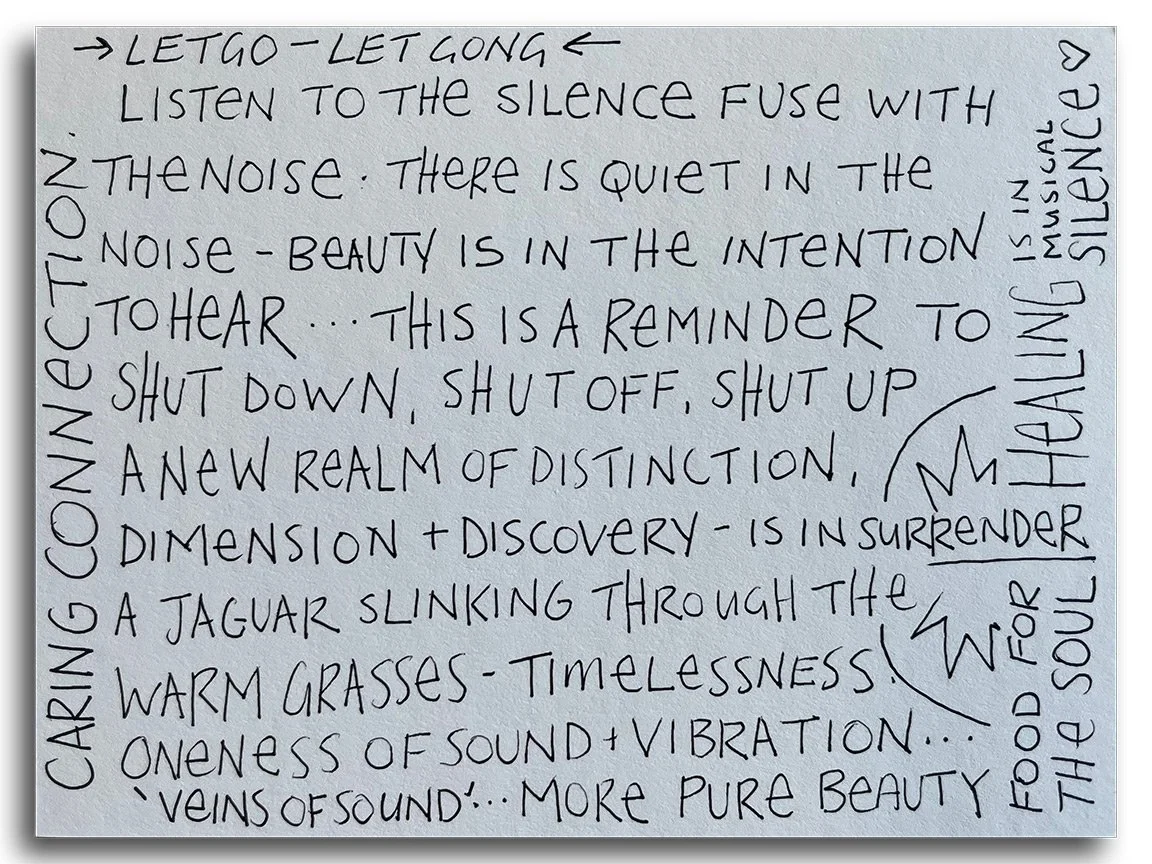 → LET GO – LET GONG ←
LISTEN TO THE SILENCE FUSE WITH
THE NOISE · THERE IS QUIET IN THE
NOISE – BEAUTY IS IN THE INTENTION
TO HEAR ... THIS IS A REMINDER TO
SHUT DOWN, SHUT OFF, SHUT UP
A NEW REALM OF DISTINCTION,
DIMENSION + DISCOVERY – IS IN SURRENDER
A JAGUAR SLINKING THROUGH THE
WARM GRASSES – TIMELESSNESS.
ONENESS OF SOUND + VIBRATION ...
'VEINS OF SOUND' ... MORE PURE BEAUTY
CARING CONNECTION.
FOOD FOR
THE SOUL
HEALING IS IN
MUSICAL
SILENCE ♡